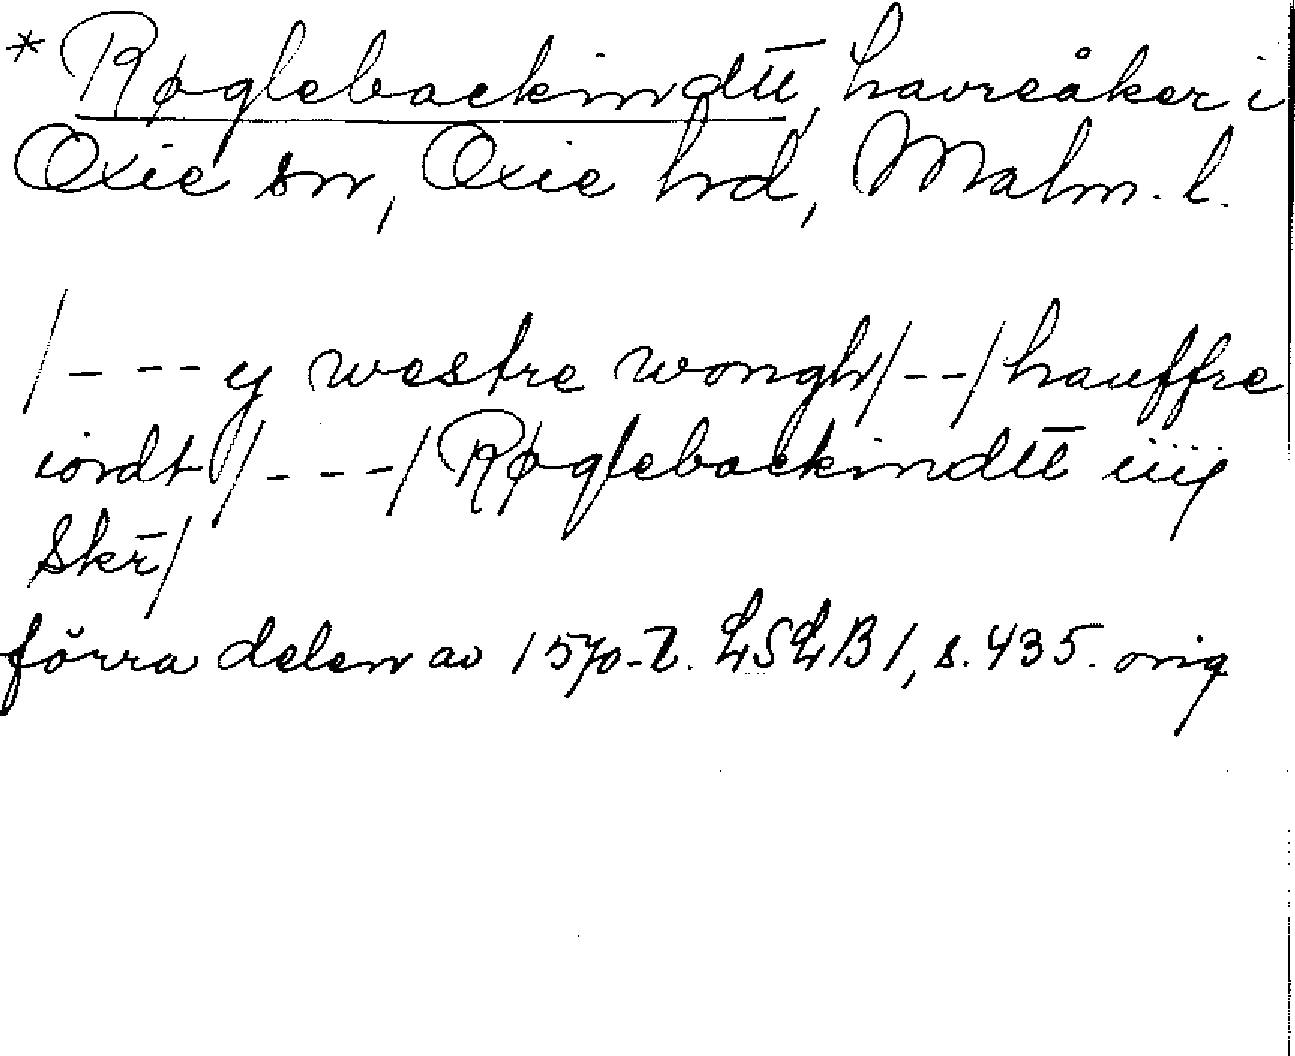 *Røglebackindtt̄, havreåker i
Oxie sn, Oxie hd, Malm. l.
/- - - y westre wongh/- -/hauffre
iordt/- - -/Røglebackindtt̄ iiij
Skr̄/
förra delen av 1570-t. LSLB 1, s. 435. orig